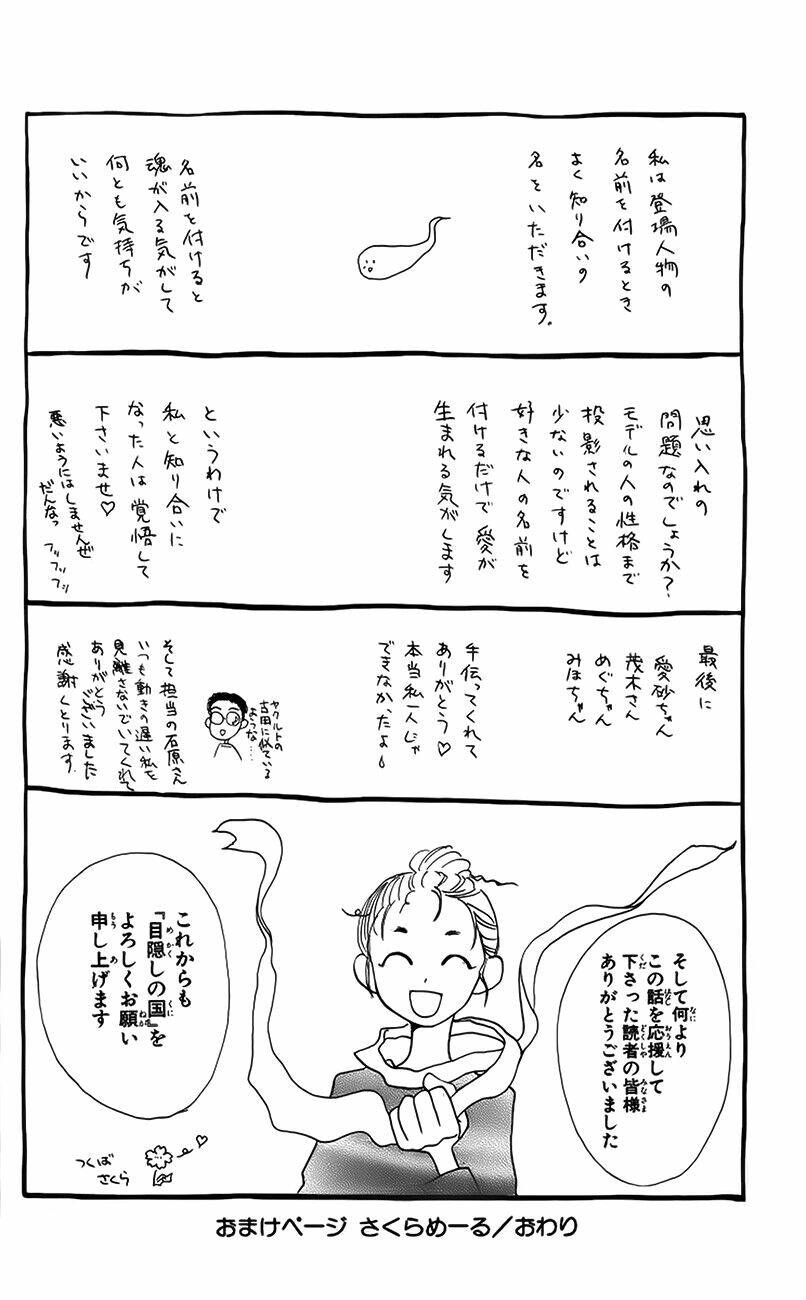 私は登場人物の
名前を付けるとき
よく知り合いの
名をいただきます。
名前を付けると
魂が入る気がして
何とも気持ちが
いいからです
思い入れの
問題なのでしょうか?
モデルの人の性格まで
投影されることは
少ないのですけど
好きな人の名前を
付けるだけで愛が
生まれる気がします
というわけで
私と知り合いに
なった人は覚悟して
下さいませ♡
悪いようにはしませんぜ
だんなっ フッフッフッ
最後に
愛砂ちゃん
茂木さん
めぐちゃん
みほちゃん
手伝ってくれて
ありがとう♡
本当私一人じゃ
できなかったよ
ヤクルトの
古田に似ている
ような…
そして担当の石原さん
いつも動きの遅い私を
見離さないでいてくれて
ありがとう
ございました
感謝しとります
そして何より
この話を応援して
下さった読者の皆様
ありがとうございました
これからも
『目隠しの国』を
よろしくお願い
申し上げます
つくば
さくら
おまけページ さくらめーる/おわり